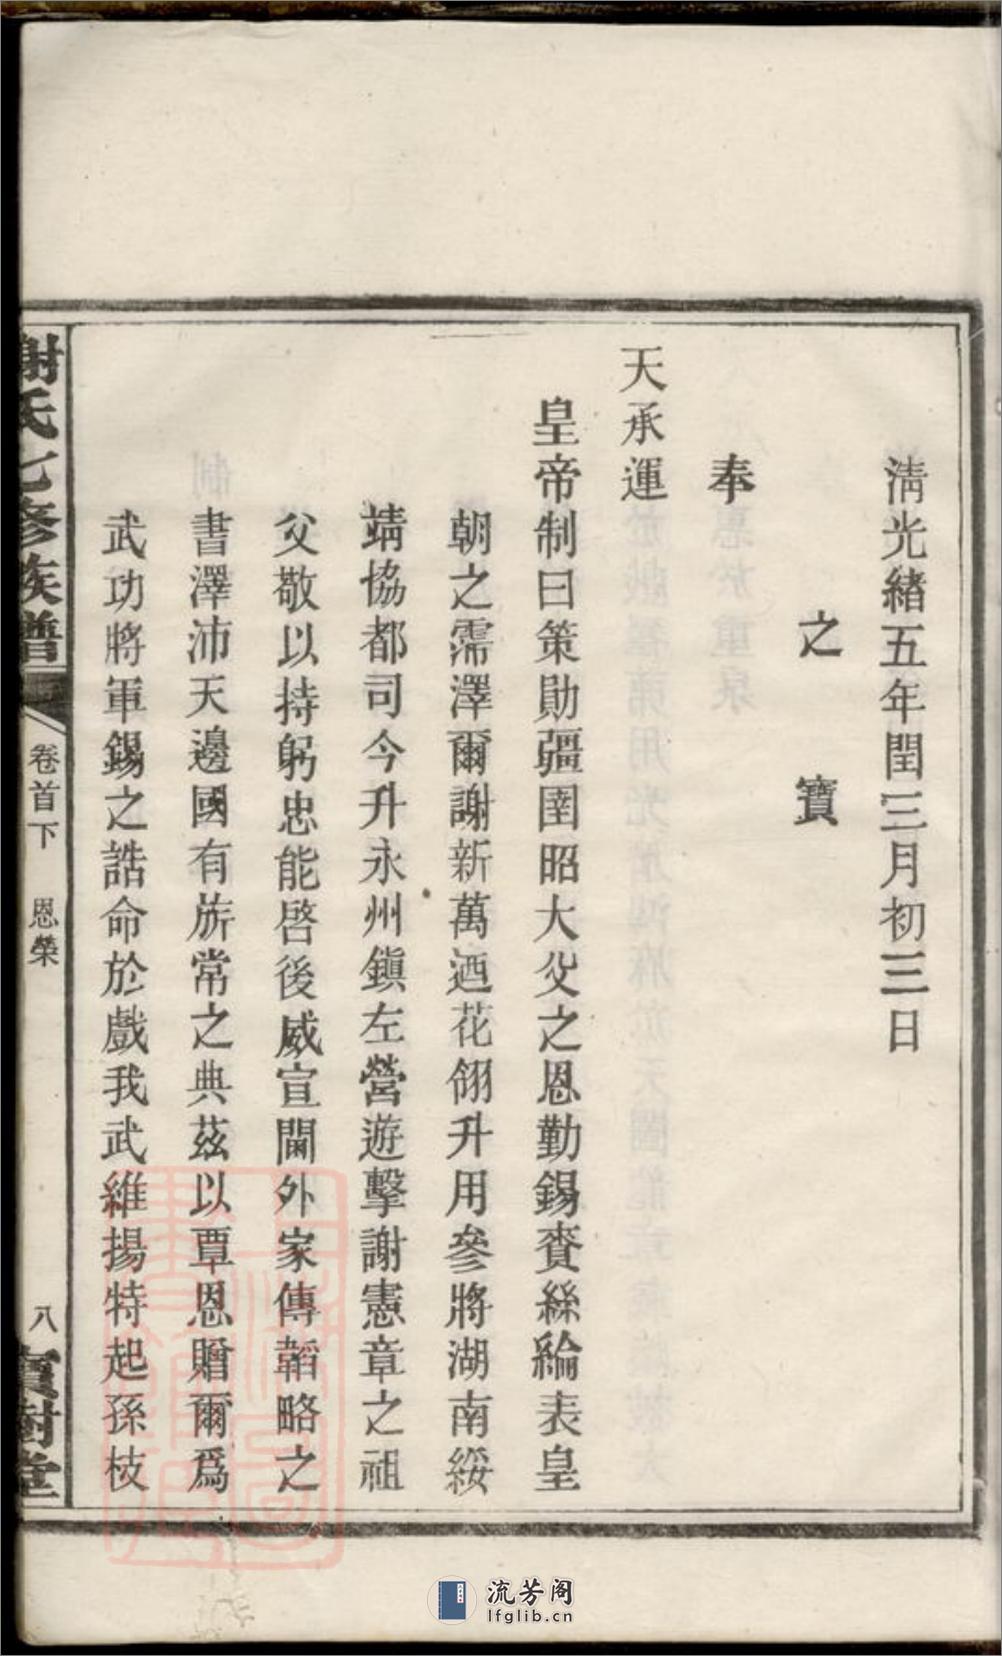 淸光緒五年閏三月初三日
之寶
奉
天承運
皇帝制曰策勛疆圉昭大父之恩勤錫賚絲綸表皇
朝之霈澤爾謝新萬迺花翎升用參將湖南綏
靖協都司今升永州鎭左營遊擊謝憲章之祖
父敬以持躬忠能啓後威宣閫外家傳韜略之
書澤沛天邊國有旂常之典茲以覃恩贈爾爲
武功將軍錫之誥命於戲我武維揚特起孫枝
謝氏七修族譜
卷首下 恩榮
八
寶樹堂
流芳阁
lfglib.cn